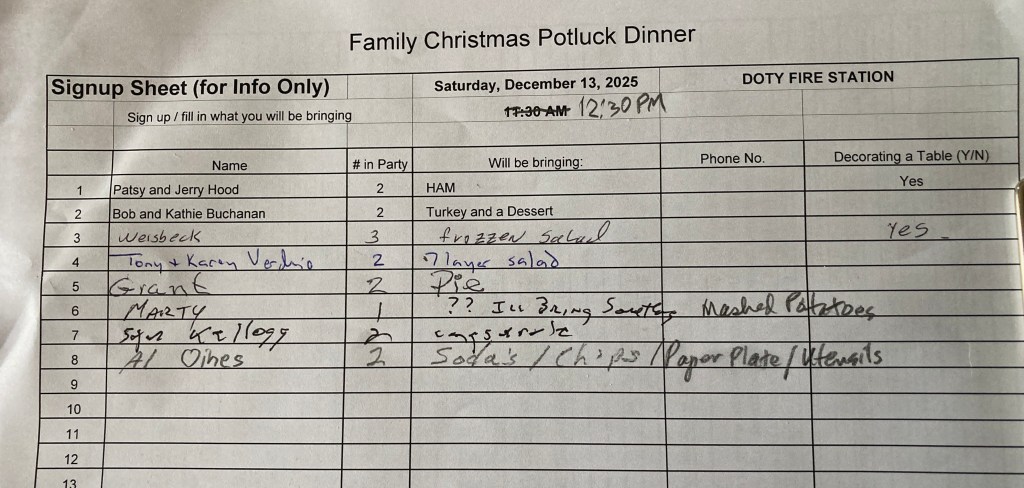 Family Christmas Potluck Dinner
Signup Sheet (for Info Only) Saturday, December 13, 2025 DOTY FIRE STATION
Sign up / fill in what you will be bringing 11:30 AM 12:30 PM
Name # in Party Will be bringing: Phone No. Decorating a Table (Y/N)
1 Patsy and Jerry Hood 2 HAM Yes
2 Bob and Kathie Buchanan 2 Turkey and a Dessert
3 Weisbeck 3 frozzen Salad Yes
4 Tony + Karen 2 7 layer salad
5 Grant 2 Pie
6 MARTY 1 ?? Ill Bring Mashed Potatoes
7 Kellogg 2
8 Al Oines 2 Soda's / Chips / Paper Plate / Utensils
9
10
11
12
13